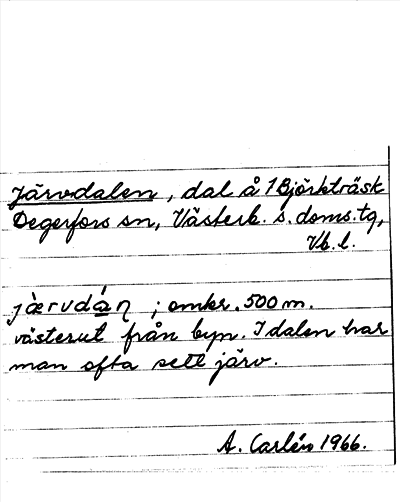 Järvdalen, dal å 1 Björkträsk
Degerfors sn, Västerb. s. doms.tg,
Vb. l.
jærvdán ; omkr. 500 m.
västerut från byn. I dalen har
man ofta sett järv.
A. Carlén 1966.